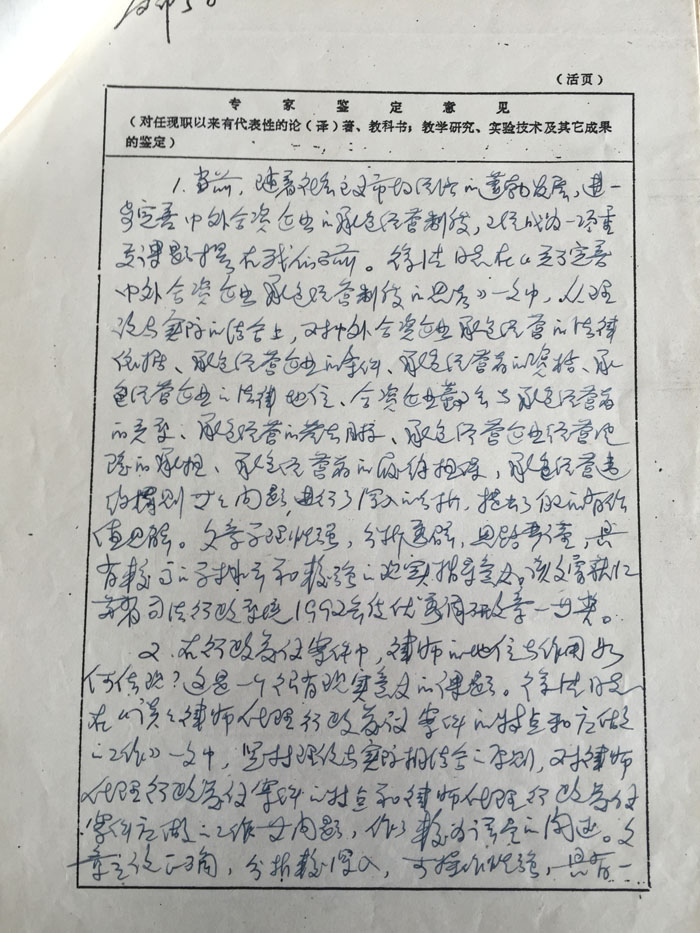 (活页)
专家鉴定意见
(对任现职以来有代表性的论(译)著、教科书;教学研究、实验技术及其它成果
的鉴定)
1. 当前,随着社会主义市场经济的蓬勃发展,进一
步完善中外合资企业的承包经营制度,已经成为一项重
要课题摆在我们面前。徐法同志在《关于完善
中外合资企业承包经营制度的思考》一文中,从理
论与实际的结合上,对中外合资企业承包经营的法律
依据、承包经营企业的条件、承包经营者的资格、承
包经营企业的法律地位、合资企业董事会与承包经营者
的关系、承包经营的 承包经营企业经营风
险的承担、承包经营者的 担保,承包经营违
约 等问题,进行了深入的分析,提出了 有价
值见解。文章 理性强,分析透辟,思路 ,具
有较 的 和较强的现实指导意义。该文曾获江
苏省司法行政系统1992年度优秀调研文章一等奖。
2. 在行政复议案件中,律师的地位与作用如
何体现?这是一个很有现实意义的课题。徐法同志
在《谈谈律师代理行政复议案件的特点和应做
的工作》一文中,坚持理论与实际相结合的原则,对律师
代理行政复议案件的特点和律师代理行政复议
案件应做的工作等问题,作了较为详尽的阐述。文
章立论正确,分析较深入,可操作性强,具有一